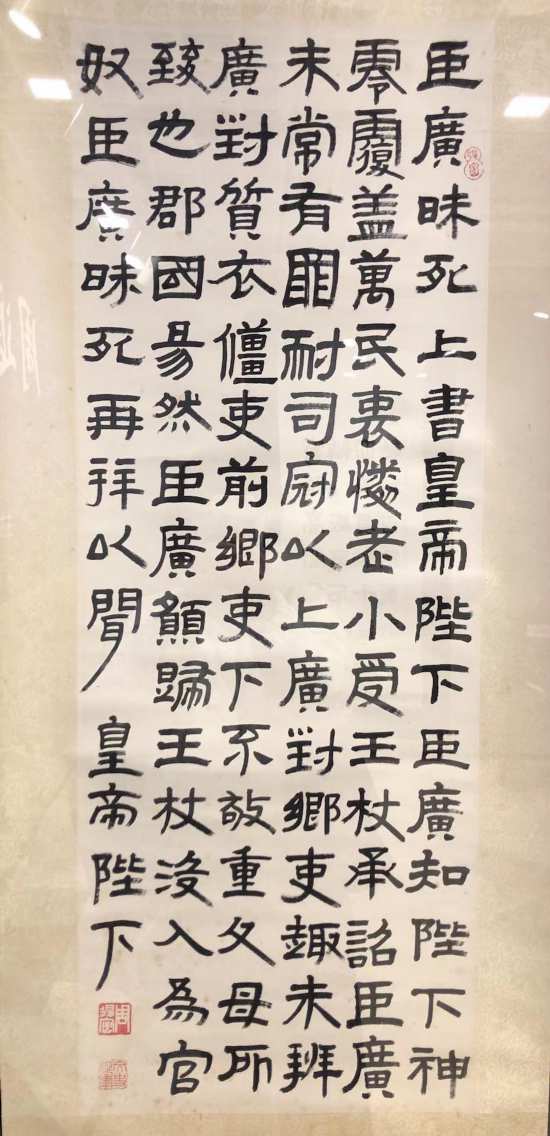 臣廣昧死上書皇帝陛下臣廣知陛下神
零覆盖萬民哀憐老小受王杖承詔臣廣
未常有罪耐司寇以上廣對鄉吏趣未辨
廣對質衣僵吏前鄉吏下不敬重父母所
致也郡國易然臣廣願歸王杖沒入為官
奴臣廣昧死再拜以聞 皇帝陛下